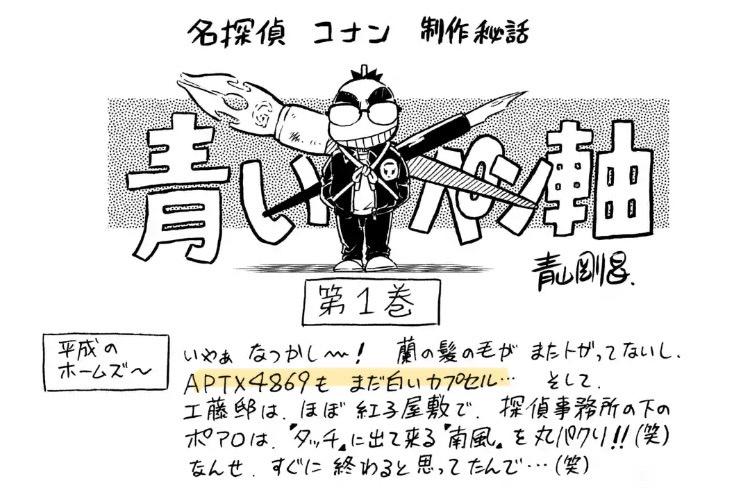 名探偵 コナン 制作秘話
青いペン軸
青山剛昌.
第1巻
平成の
ホームズ〜
いやぁ なつかし〜! 蘭の髪の毛が まだトガってないし.
APTX4869も まだ白いカプセル… そして.
工藤邸は、ほぼ 紅子屋敷で、探偵事務所の下の
ポアロは、『タッチ』に出て来る『南風』を丸パクリ!!(笑)
なんせ、すぐに 終わると思ってたんで…(笑)